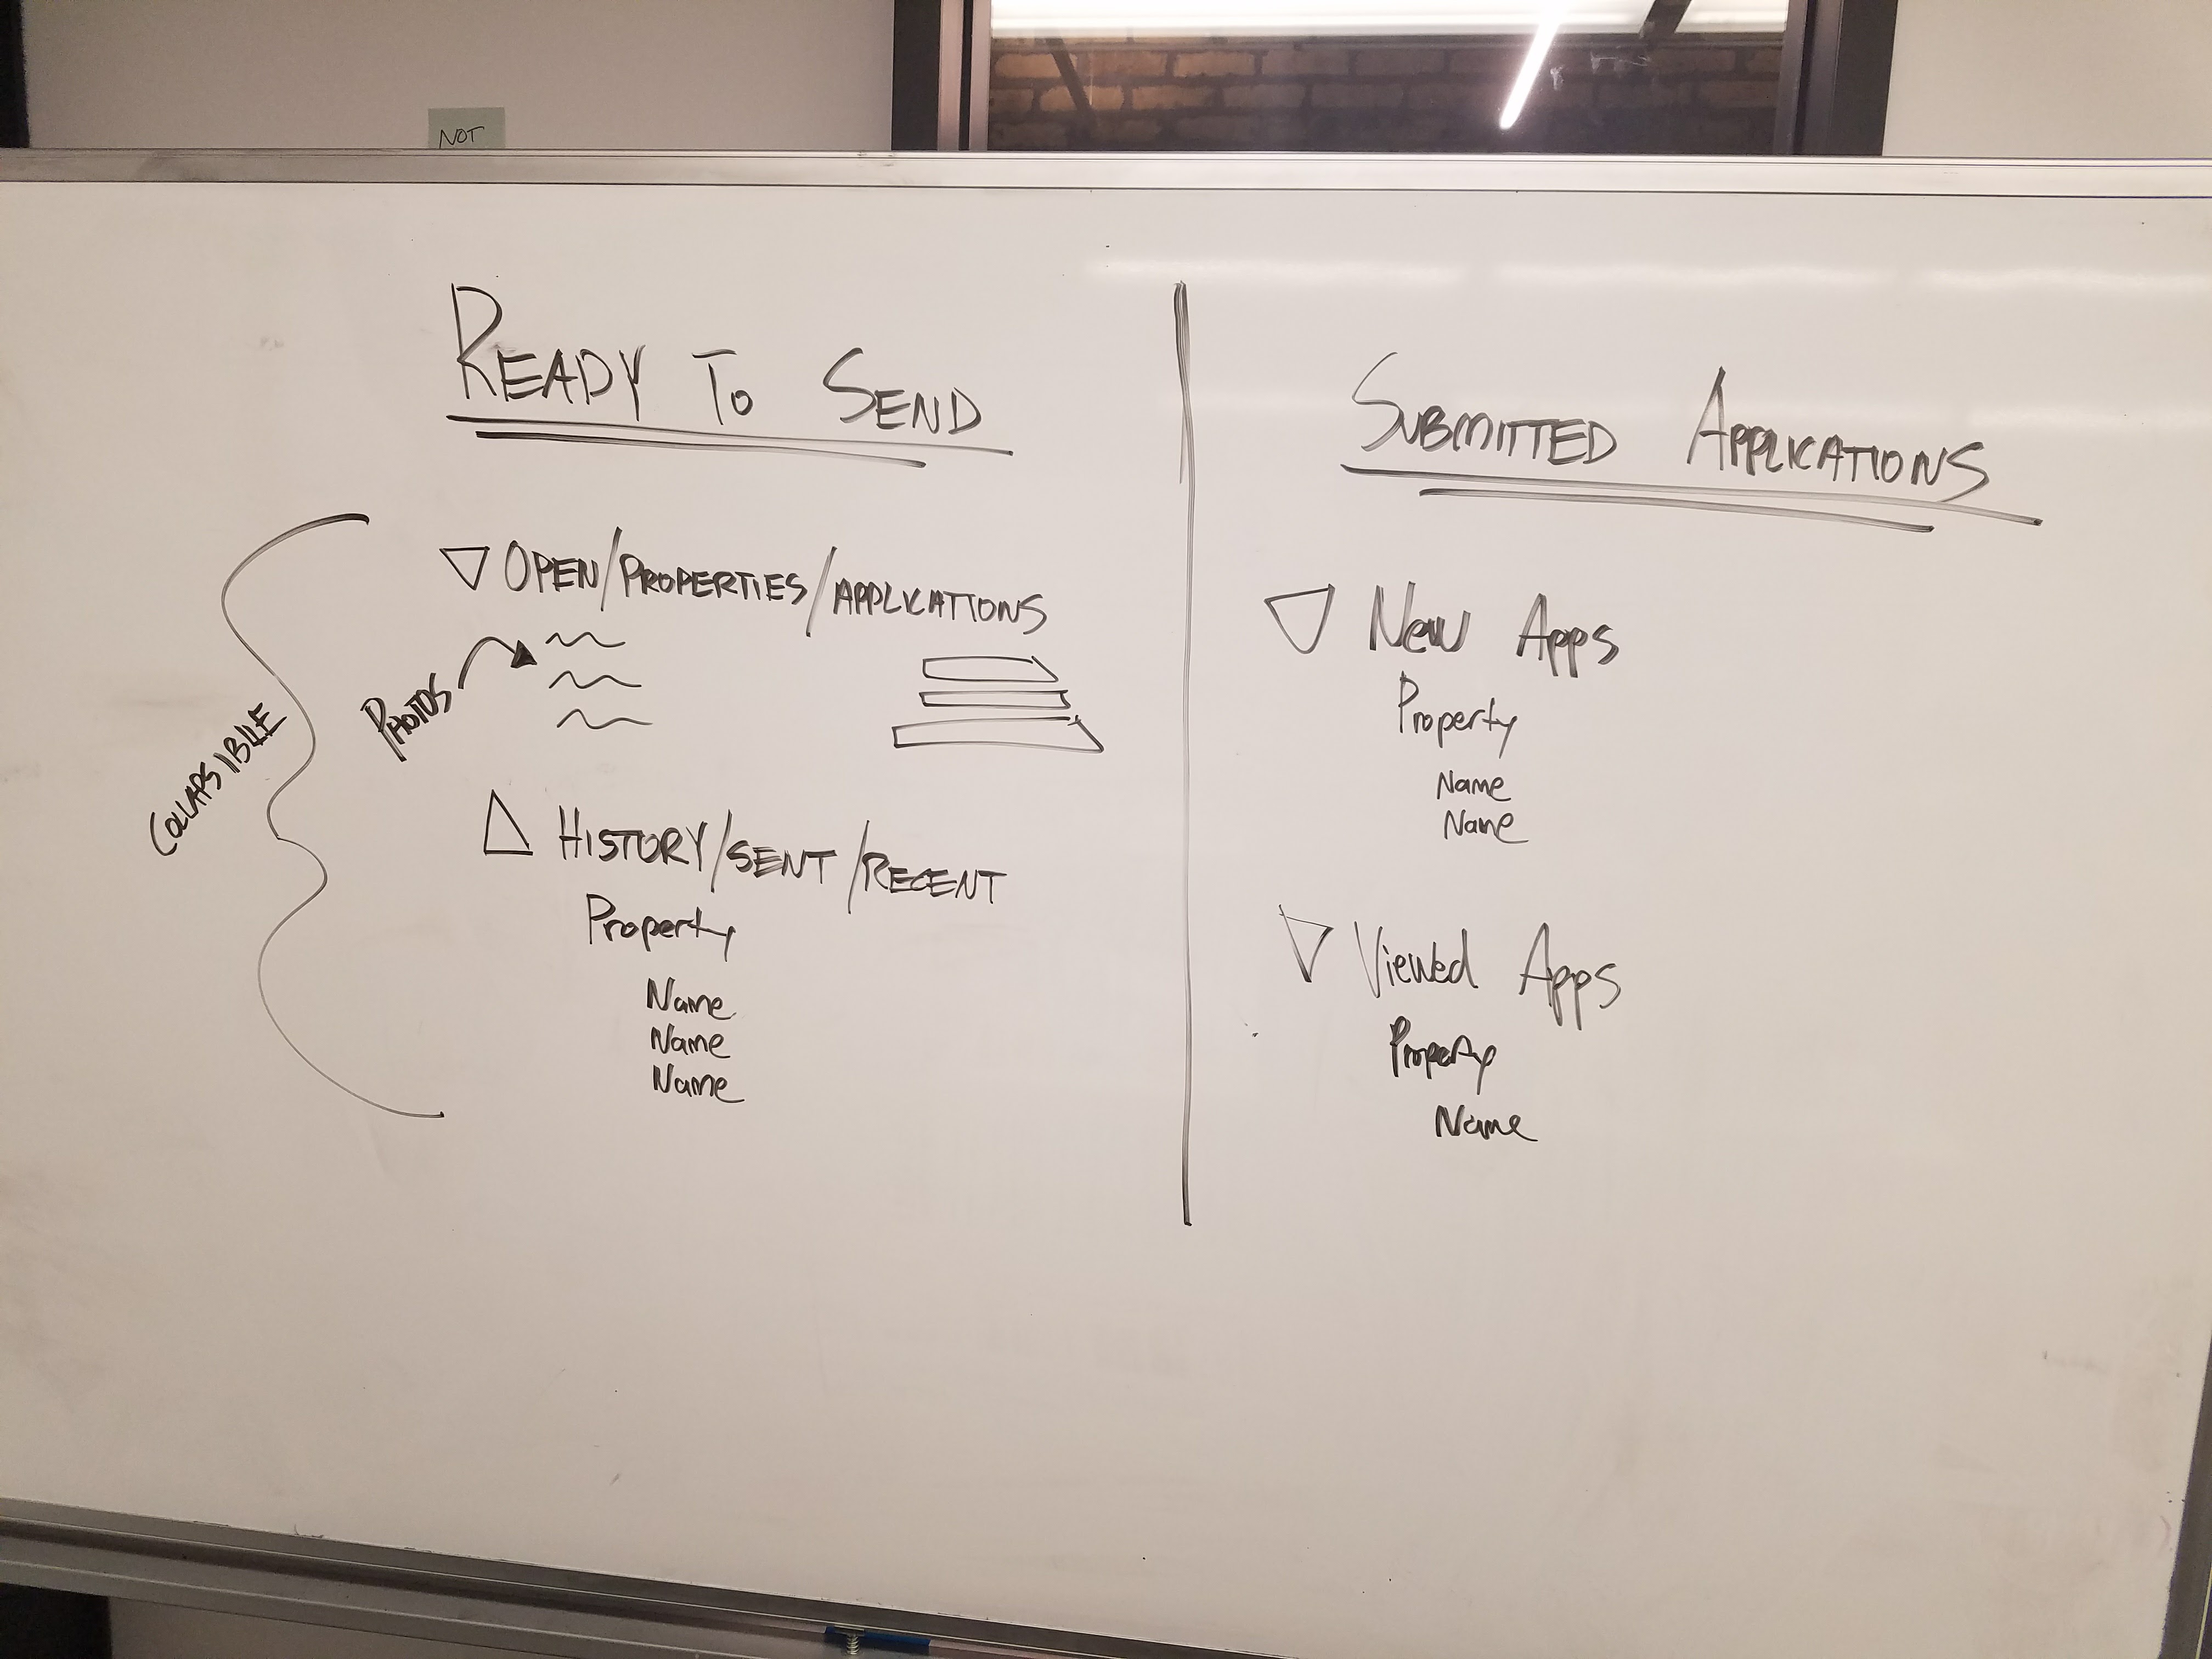 NOT
READY TO SEND
OPEN/PROPERTIES/APPLICATIONS
PHOTOS
COLLAPSIBLE
HISTORY/SENT/RECENT
Property
Name
Name
Name
SUBMITTED APPLICATIONS
New Apps
Property
Name
Name
Viewed Apps
Property
Name